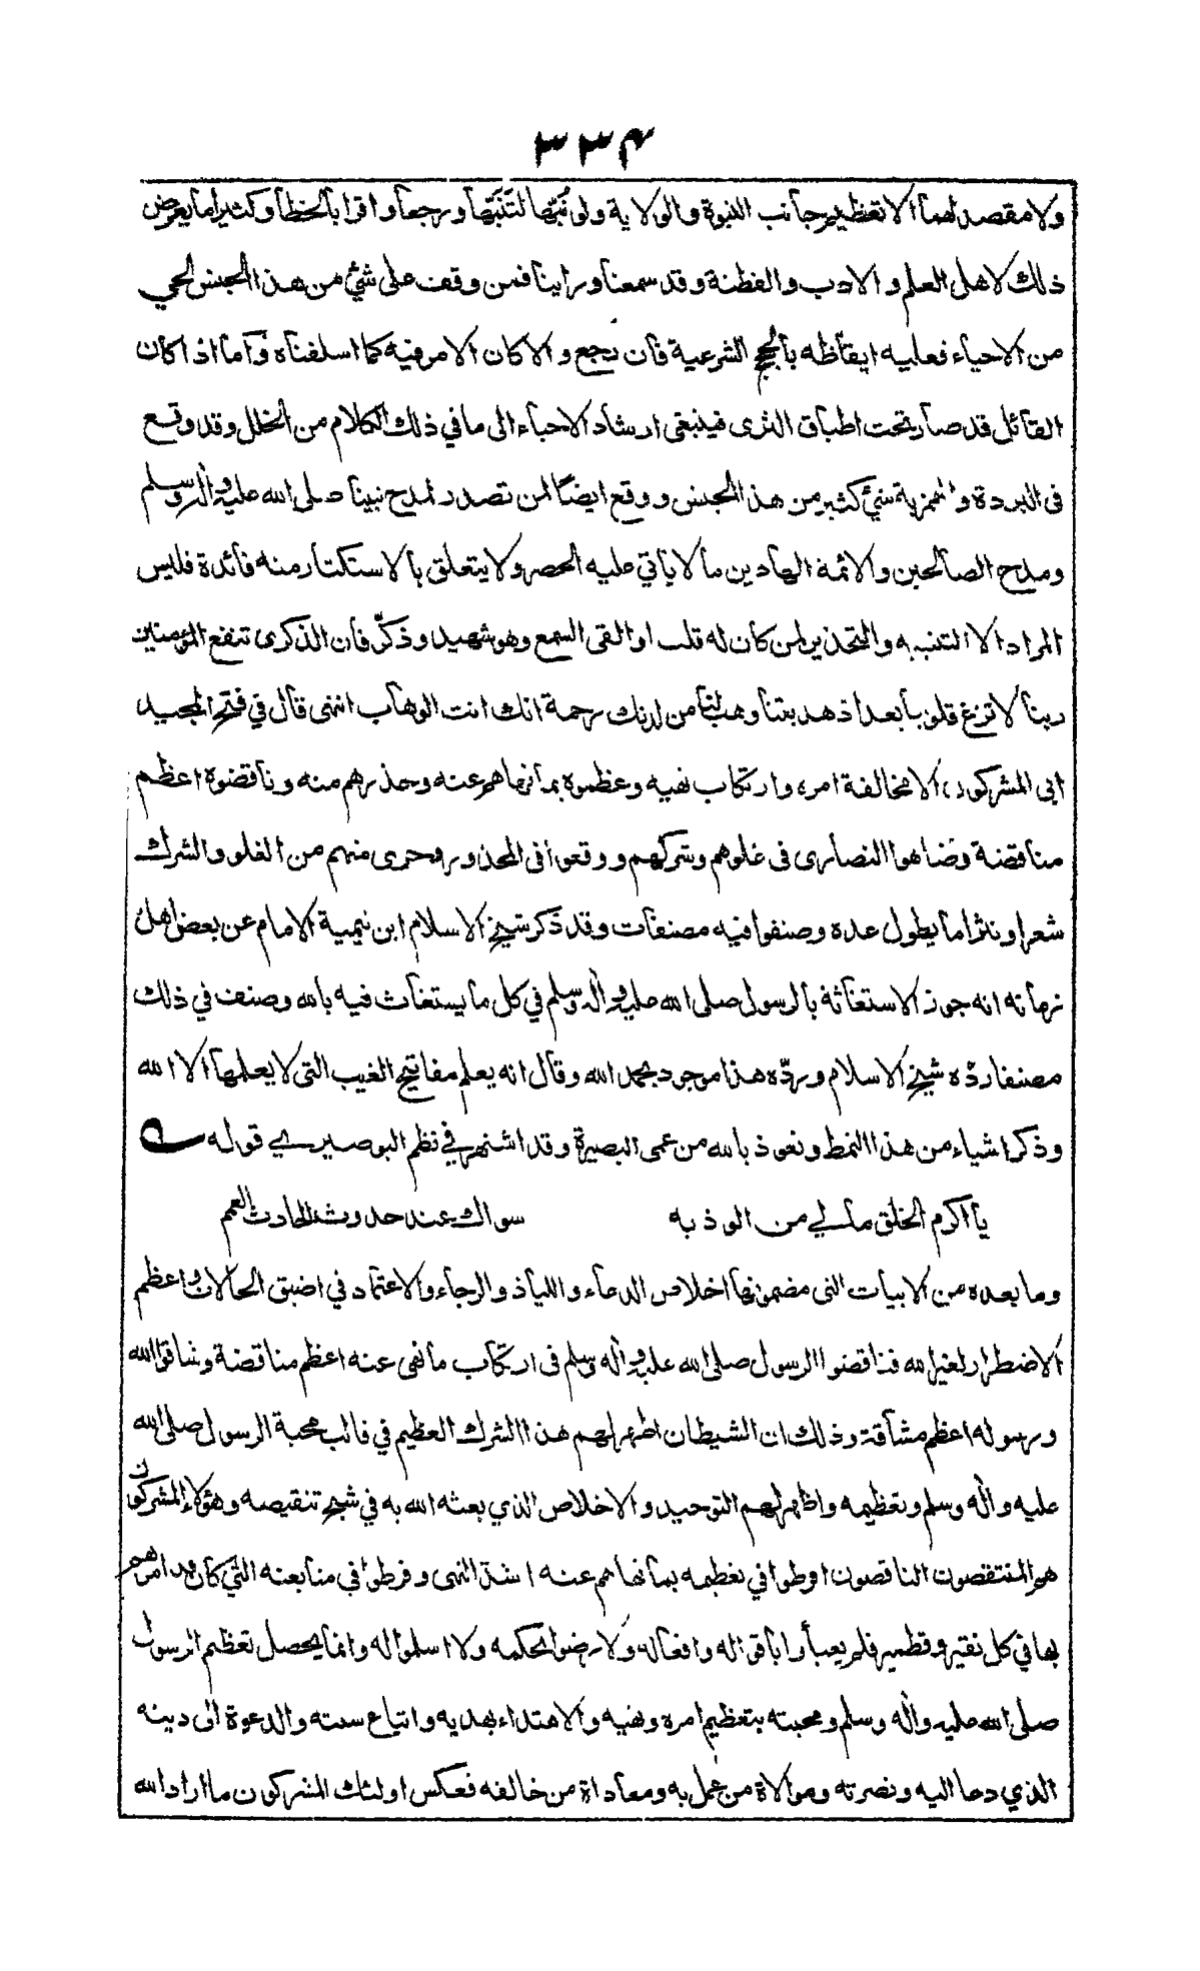 ٣٣٤
ولا مقصد لهما الا تعظيم جانب النبوة والولاية ولو نُبِّها لتَنَبَّها ورجعا واقرا بالخطأ وكثيرا ما يعرض
ذلك لاهل العلم والادب والفطنة وقد سمعنا ورأينا فمن وقف على شئ من هذا الجنس لحي
من الاحياء فعليه ايقاظه بالحجج الشرعية فان رجع والا كان الامر فيه كما اسلفناه وأما اذا كان
القائل قد صار تحت اطباق الثرى فينبغي ارشاد الاحياء الى ما في ذلك الكلام من الخلل وقد وقع
في البردة والهمزية شئ كثير من هذا الجنس ووقع ايضا لمن تصدر لمدح نبينا صلى الله عليه وآله وسلم
ومدح الصالحين والائمة الهادين ما لا يأتي عليه الحصر ولا يتعلق بالاستكثار منه فائدة فليس
المراد الا التنبيه والتحذير لمن كان له قلب او القى السمع وهو شهيد وذكّر فان الذكرى تنفع المؤمنين
ربنا لا تزغ قلوبنا بعد اذ هديتنا وهب لنا من لدنك رحمة انك انت الوهاب انتهى قال في فتح المجيد
ابى المشركون الا مخالفة امره وارتكاب نهيه وعظموه بما نهاهم عنه وحذرهم منه وناقضوه اعظم
مناقضة وضاهوا النصارى في غلوهم وشركهم ووقعوا في المحذور وجرى منهم من الغلو والشرك
شعرا ونثرا ما يطول عده وصنفوا فيه مصنفات وقد ذكر شيخ الاسلام ابن تيمية الامام عن بعض اهل
زمانه انه جوز الاستغاثة بالرسول صلى الله عليه وآله وسلم في كل ما يستغاث فيه بالله وصنف في ذلك
مصنفا ردّه شيخ الاسلام وردّه هذا موجود بحمد الله وقال انه يعلم مفاتيح الغيب التي لا يعلمها الا الله
وذكر اشياء من هذا النمط ونعوذ بالله من عمى البصيرة وقد اشتهر في نظم البوصيري قوله
يا اكرم الخلق ما لي من الوذ به    سواك عند حدوث الحادث العمم
وما بعده من الابيات التي مضمونها اخلاص الدعاء واللياذ والرجاء والاعتماد في اضيق الحالات واعظم
الاضطرار لغير الله فناقضوا الرسول صلى الله عليه وآله وسلم في ارتكاب ما نهى عنه اعظم مناقضة وشاقوا الله
ورسوله اعظم مشاقة وذلك ان الشيطان اظهر لهم هذا الشرك العظيم في قالب محبة الرسول صلى الله
عليه وآله وسلم وتعظيمه واظهر لهم التوحيد والاخلاص الذي بعثه الله به في شبح تنقيصه وهؤلاء المشركون
هم المنتقصون الناقصون افرطوا في تعظيمه بما نهاهم عنه اشد النهي وفرطوا في متابعته التي كان قد امرهم
بها في كل نقير وقطمير فلم يعبأوا باقواله وافعاله ولا رضوا بحكمه ولا اسلموا له وانما يحصل تعظيم الرسول
صلى الله عليه وآله وسلم ومحبته بتعظيم امره ونهيه والاهتداء بهديه واتباع سنته والدعوة الى دينه
الذي دعا اليه ونصرته وموالاة من عمل به ومعاداة من خالفه فعكس اولئك المشركون ما اراد الله